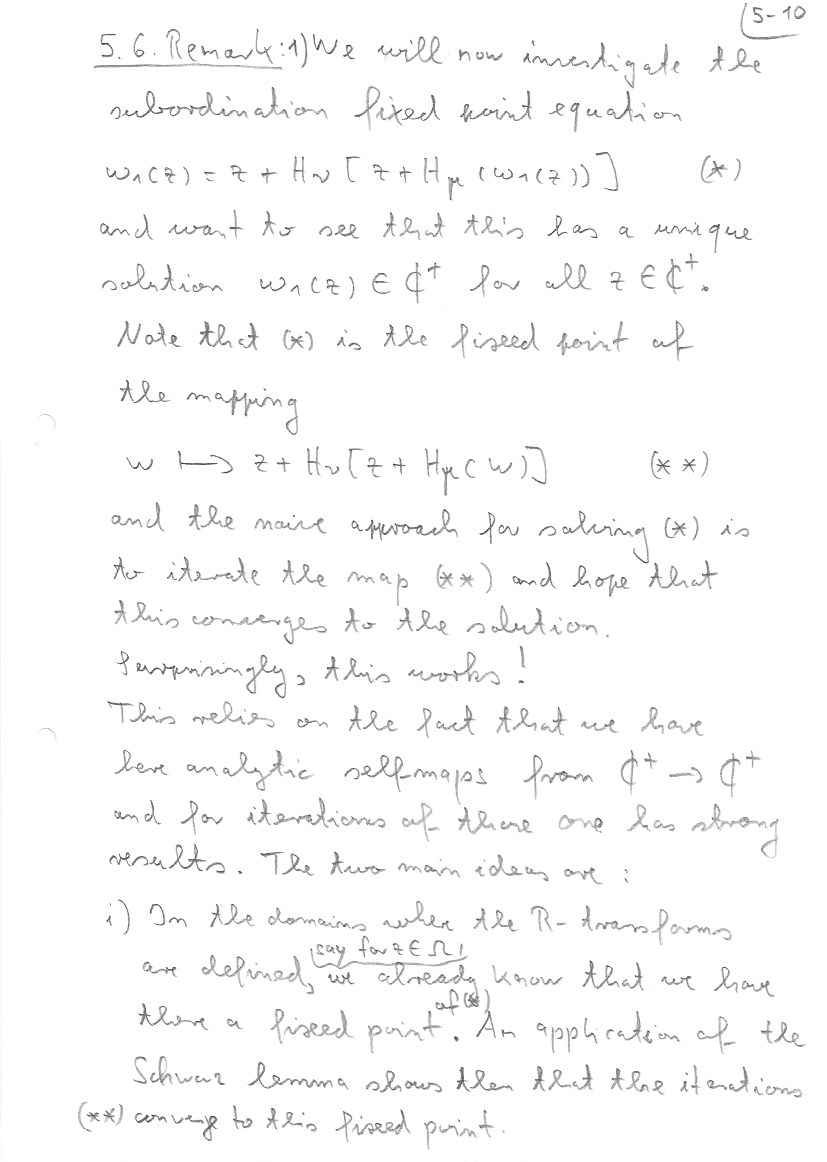 5-10
5.6. Remark: 1) We will now investigate the
subordination fixed point equation
ω₁(z) = z + Hν [ z + Hμ (ω₁(z)) ] (*)
and want to see that this has a unique
solution ω₁(z) ∈ ℂ⁺ for all z ∈ ℂ⁺.
Note that (*) is the fixed point of
the mapping
w ↦ z + Hν [ z + Hμ (w) ] (**)
and the naive approach for solving (*) is
to iterate the map (**) and hope that
this converges to the solution.
Surprisingly, this works!
This relies on the fact that we have
here analytic self-maps from ℂ⁺ → ℂ⁺
and for iterations of those one has strong
results. The two main ideas are:
i) In the domains where the R-transforms
say for z ∈ Ω,
are defined, we already know that we have
of (*)
there a fixed point. An application of the
Schwarz lemma shows then that the iterations
(**) converge to this fixed point.